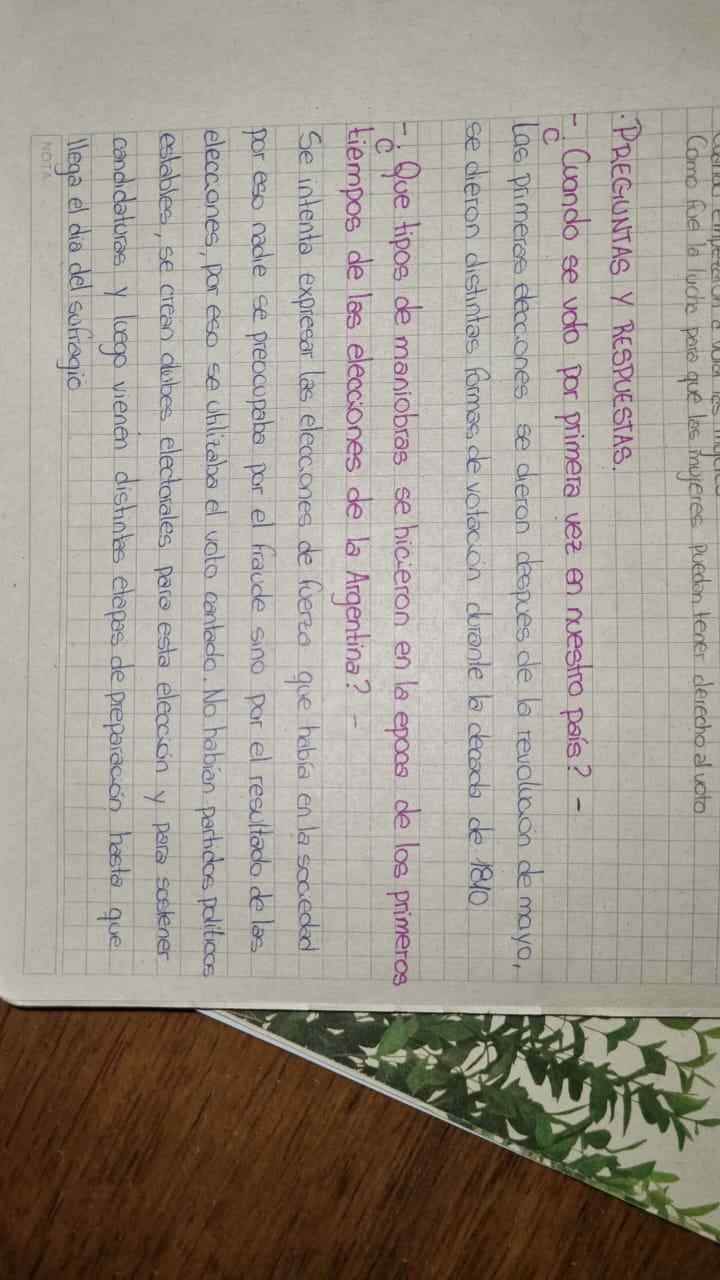 Como fue la lucha para que las mujeres puedan tener derecho al voto
· PREGUNTAS Y RESPUESTAS.
- ¿Cuando se voto por primera vez en nuestro país? -
Las primeras elecciones se dieron despues de la revolución de mayo,
se dieron distintas formas de votación durante la decada de 1810
- ¿Que tipos de maniobras se hicieron en la epoca de los primeros
tiempos de las elecciones de la Argentina? -
Se intenta expresar las elecciones de fuerza que había en la sociedad
por eso nadie se preocupaba por el fraude sino por el resultado de las
elecciones, por eso se utilizaba el voto cantado. No habían partidos politicos
estables, se crean clubes electorales para esta elección y para sostener
candidaturas y luego vienen distintas etapas de preparación hasta que
llega el dia del sufragio
NOTA